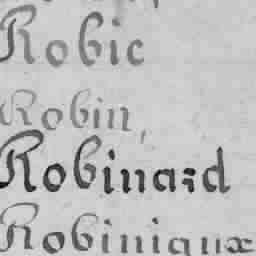 Robic
Robin,
Robinard
Robiniaux